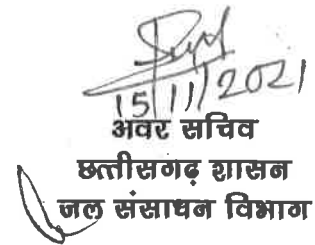 15/11/2021
अवर सचिव
छत्तीसगढ़ शासन
जल संसाधन विभाग